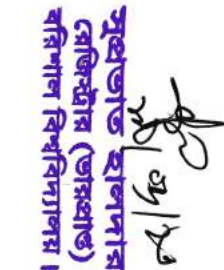 সুপ্রভাত হালদার
রেজিস্ট্রার (ভারপ্রাপ্ত)
বরিশাল বিশ্ববিদ্যালয়।